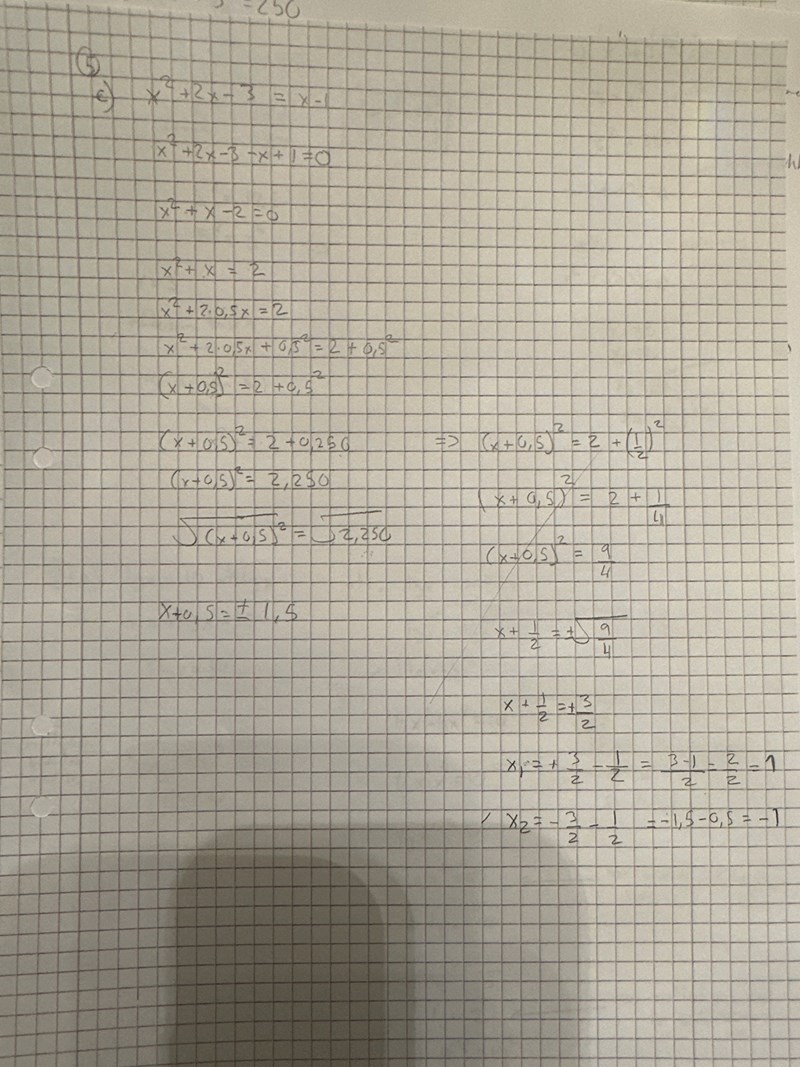 =250
5
c) x²+2x-3 = x-1
x²+2x-3-x+1=0
x²+x-2=0
x²+x = 2
x²+2·0,5x=2
x²+2·0,5x+0,5²=2+0,5²
(x+0,5)²=2+0,5²
(x+0,5)²=2+0,250
(x+0,5)²=2,250
√(x+0,5)²=√2,250
x+0,5=±1,5
=> (x+0,5)²=2+(1/2)²
(x+0,5)²=2+1/4
(x+0,5)²=9/4
x+1/2=±√9/4
x+1/2=±3/2
x₁=+3/2-1/2=3-1/2=2/2=1
x₂=-3/2-1/2=-1,5-0,5=-1